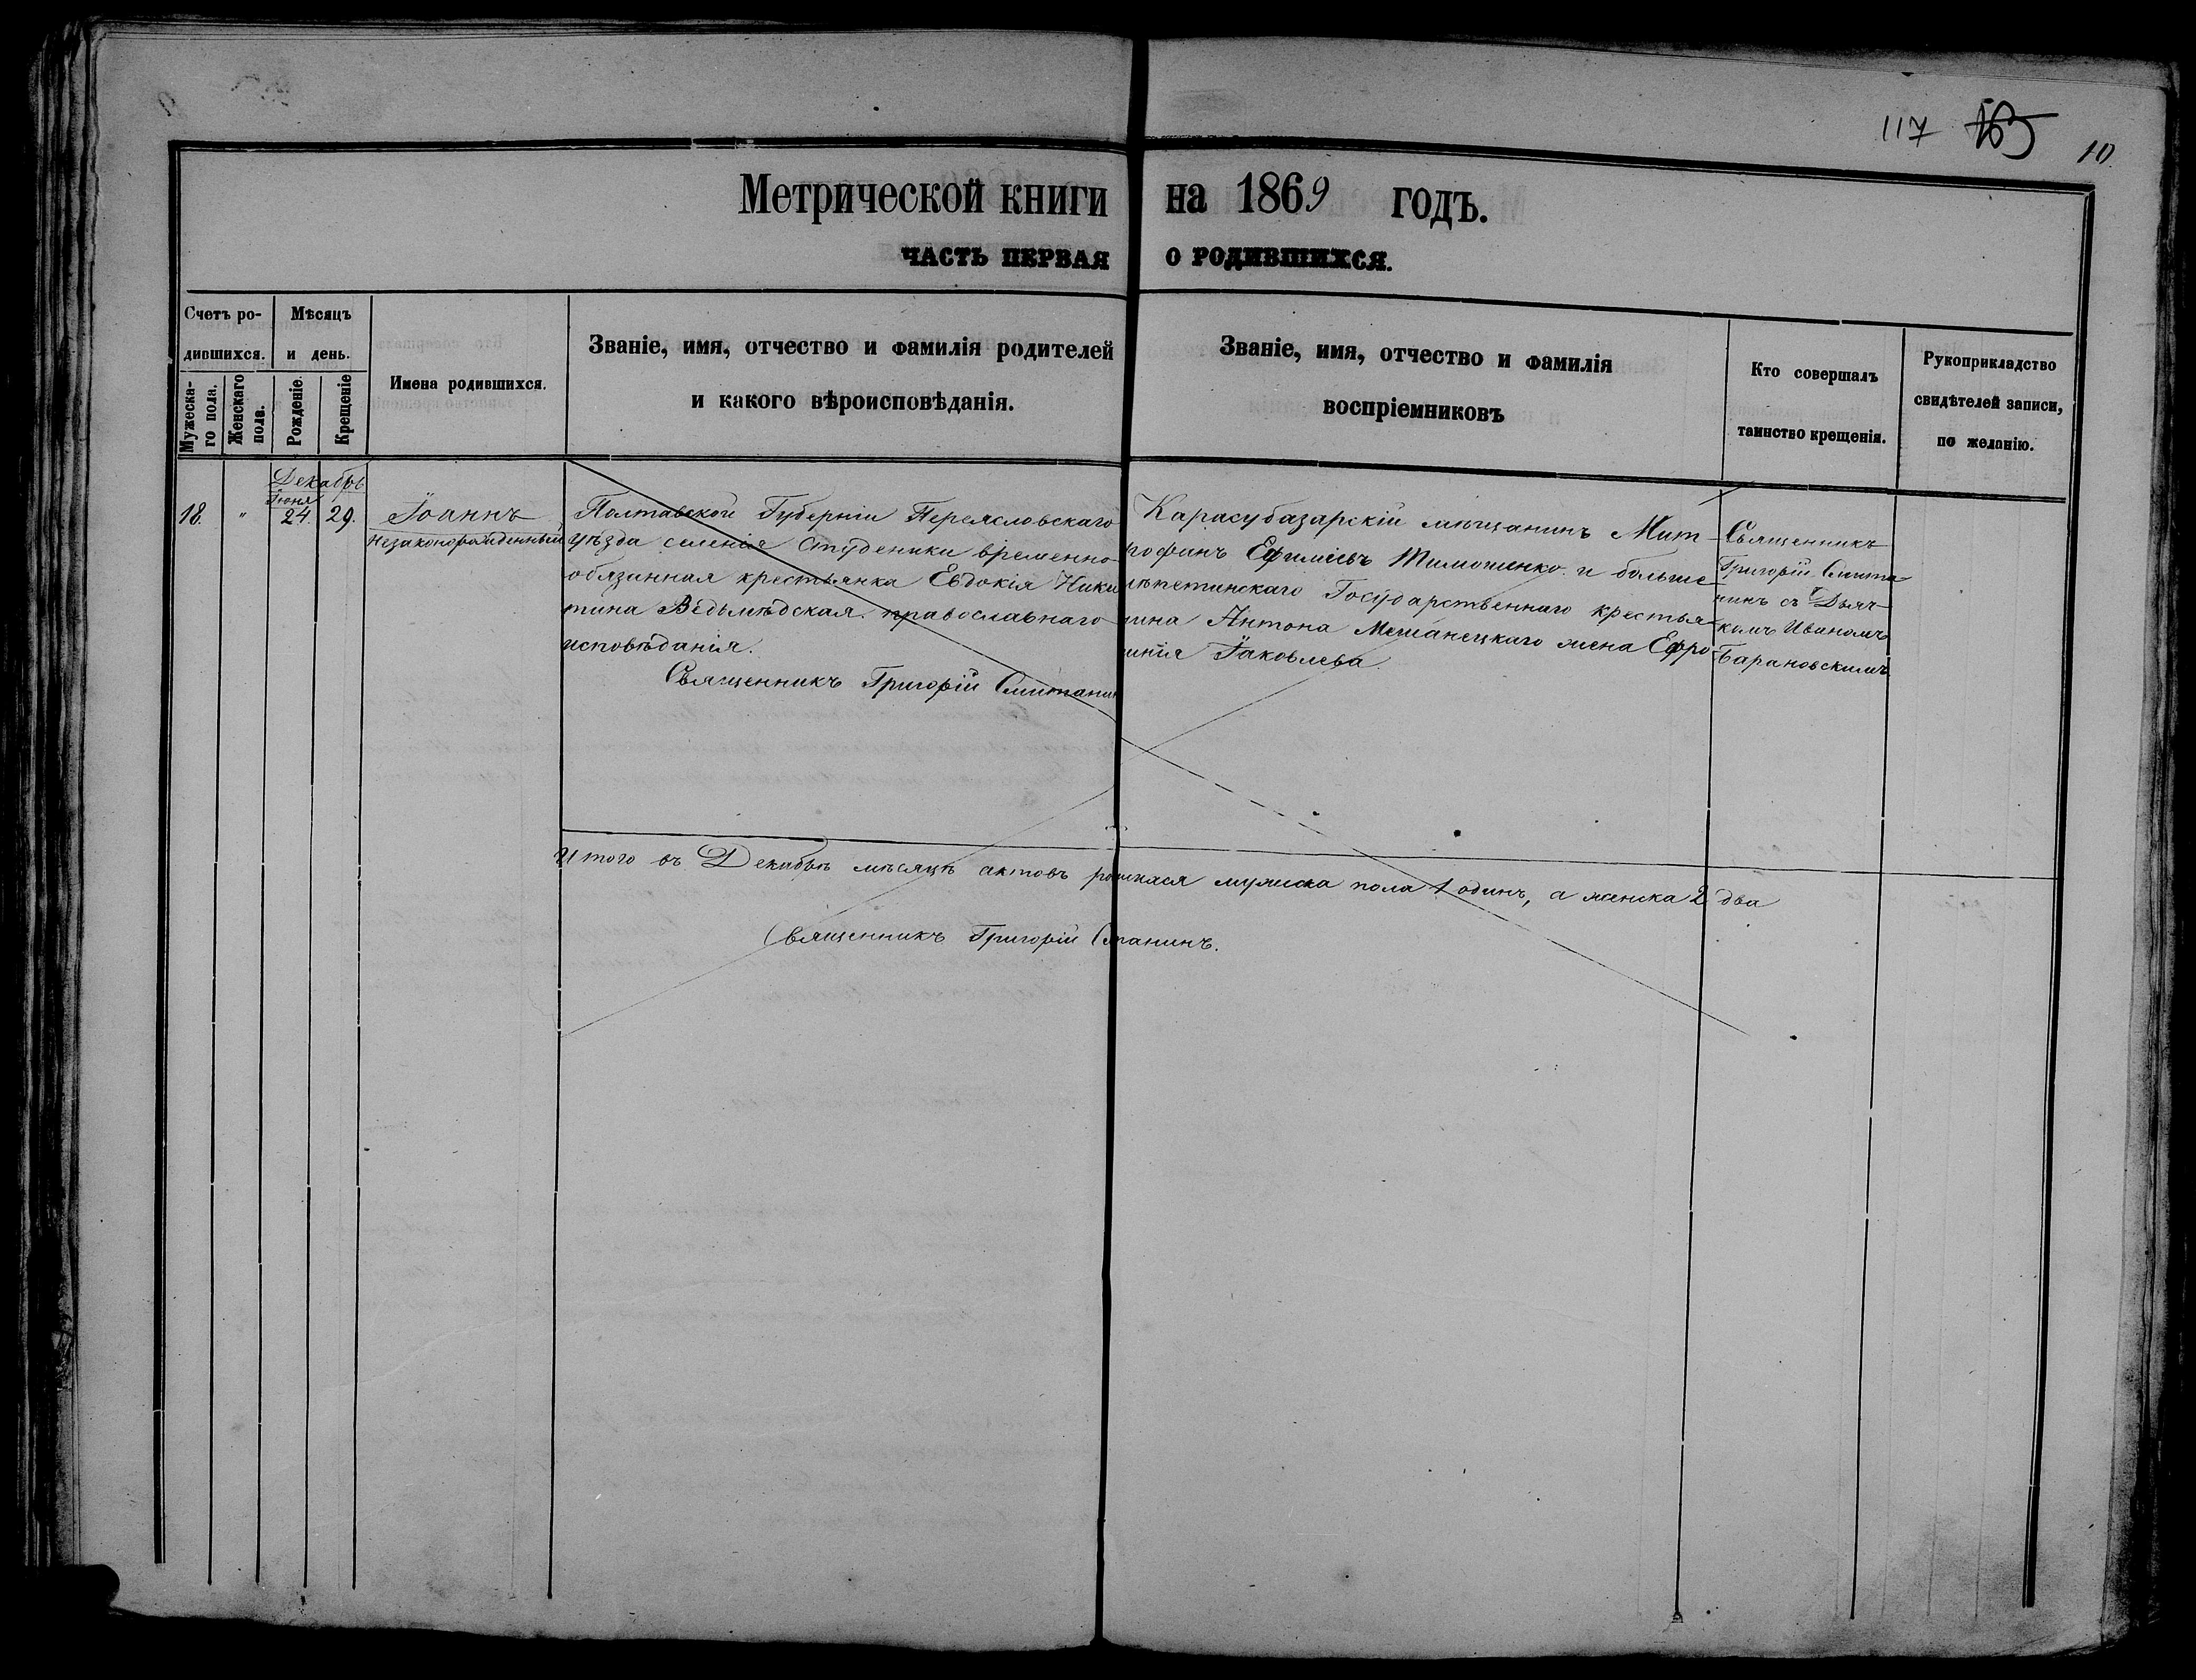 117 165 10
Метрической книги на 1869 годъ.
ЧАСТЬ ПЕРВАЯ О РОДИВШИХСЯ.
Счетъ ро-
дившихся.
Мужеска-
го пола.
Женскаго
пола.
Мѣсяцъ
и день.
Рожденіе.
Крещеніе
Имена родившихся.
Званіе, имя, отчество и фамилія родителей
и какого вѣроисповѣданія.
Званіе, имя, отчество и фамилія
воспріемниковъ
Кто совершалъ
таинство крещенія.
Рукоприкладство
свидѣтелей записи,
по желанію.
Декабрь
Іюня
18. " 24. 29.
Іоаннъ
незаконорожденный
Полтавской Губерніи Переясловскаго
уѣзда селенія Студеники временно-
обязанная крестьянка Евдокія Ники
тина Ведьмѣдская православнаго
исповѣданія.
Священникъ Григорій
Карасубазарскій мѣщанинъ Мит-
рофанъ Ефиміевъ Тимошенко и больше
лепетинскаго Государственнаго крестья
нина Антона жена Ефро
синія Іаковлева.
Священникъ
Григорій Смита
нинъ съ Дьяч-
комъ Иваномъ
Барановскимъ
Итого въ Декабрѣ мѣсяцѣ актовъ мужска пола 1 одинъ, а женска 2 два
Священникъ Григорій